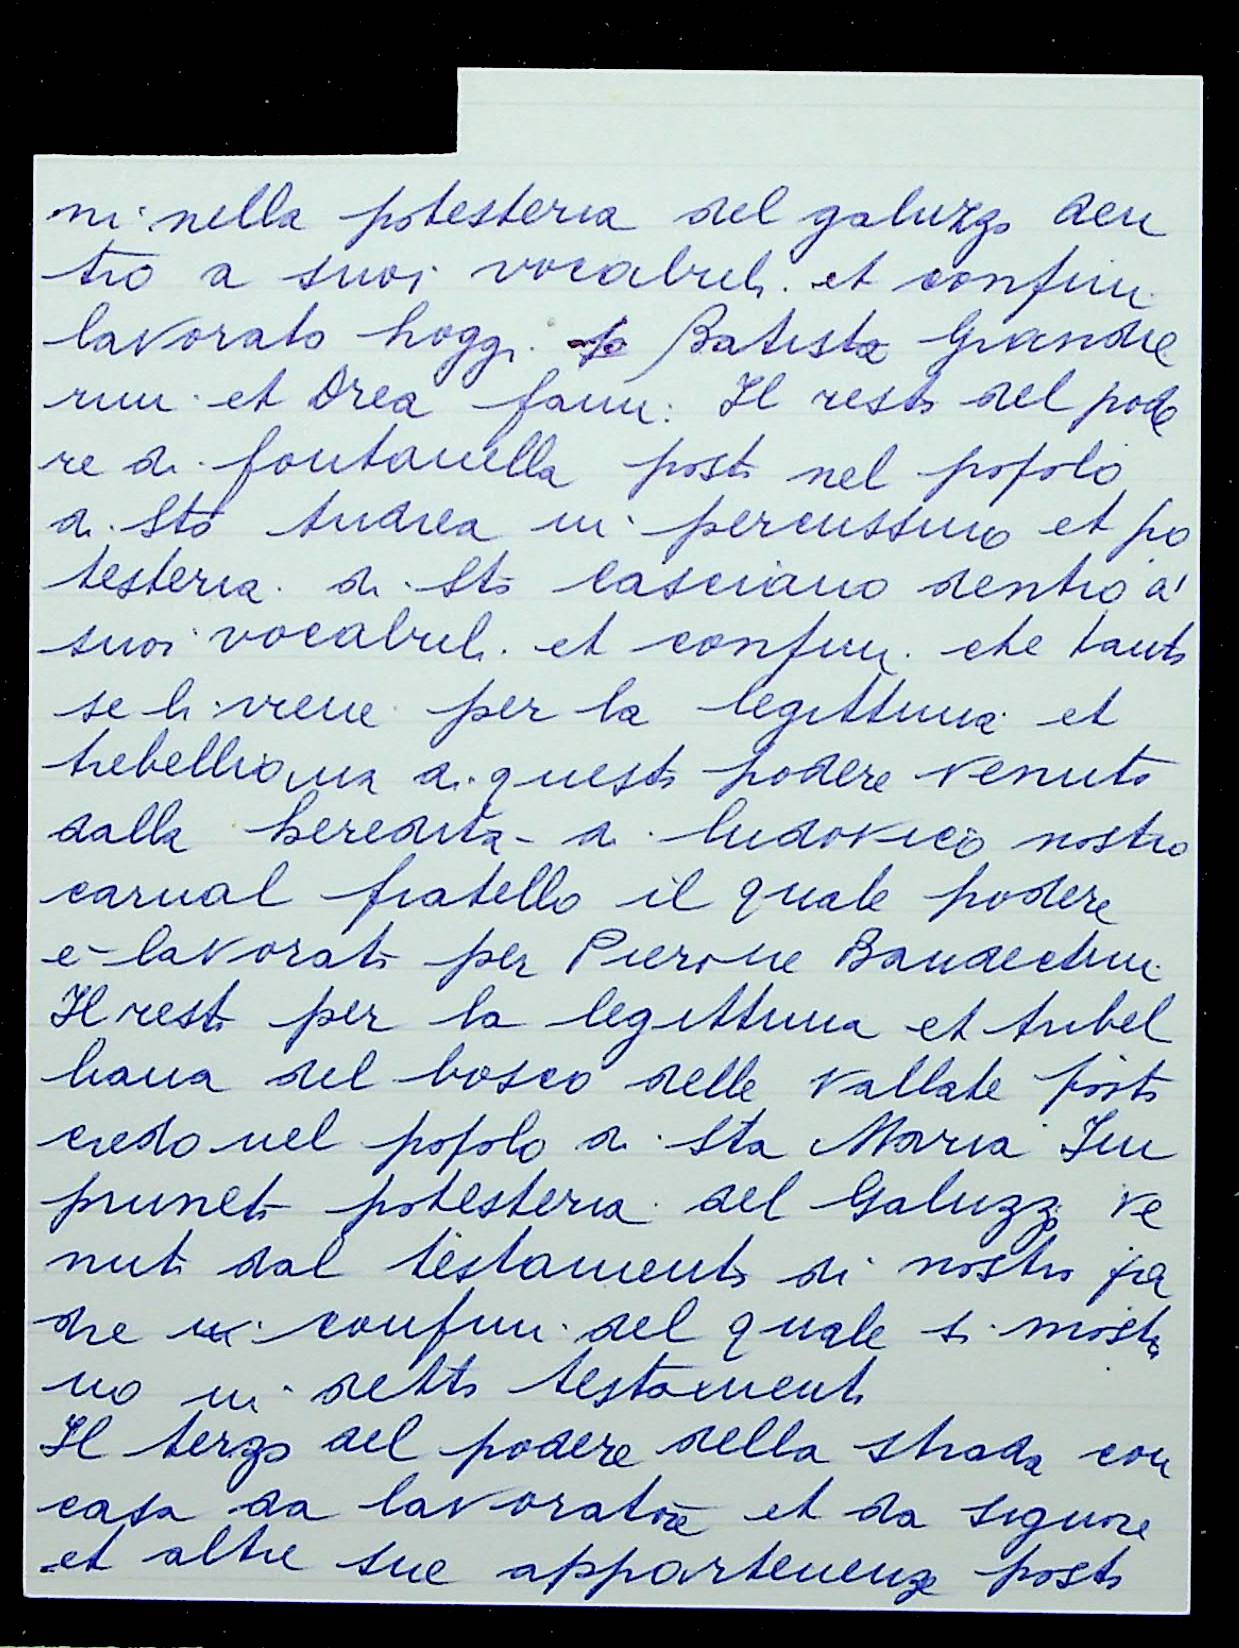 ni nella potesteria del galuzzo den
tro a suoi vocabuli et confini
lavorato hoggi Batista Grandie
rini et Drea fanni. Il resto del pode
re di fontanella posto nel popolo
di Sto Andrea in percussino et po
testeria di Sto Casciano dentro a'
suoi vocabuli et confini che tanto
se li viene per la legittima et
trebelliana di questo podere venuto
dalla heredita di ludovico nostro
carnal fratello il quale podere
e lavorato per Pierone Bandechini
Il resto per la legittima et tribel
liana del bosco delle vallate posto
credo nel popolo di Sta Maria Im
pruneta potesteria del Galuzzo ve
nuto dal testamento di nostro pa
dre confini del quale si mostra
no in detto testamento
Il terzo del podere della strada con
casa da lavoratore et da signore
et altre sue appartenenze posto